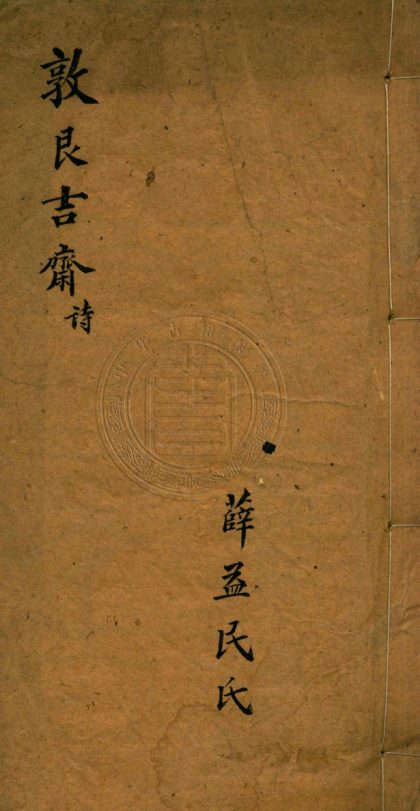 敦艮吉齋詩
薛益民氏